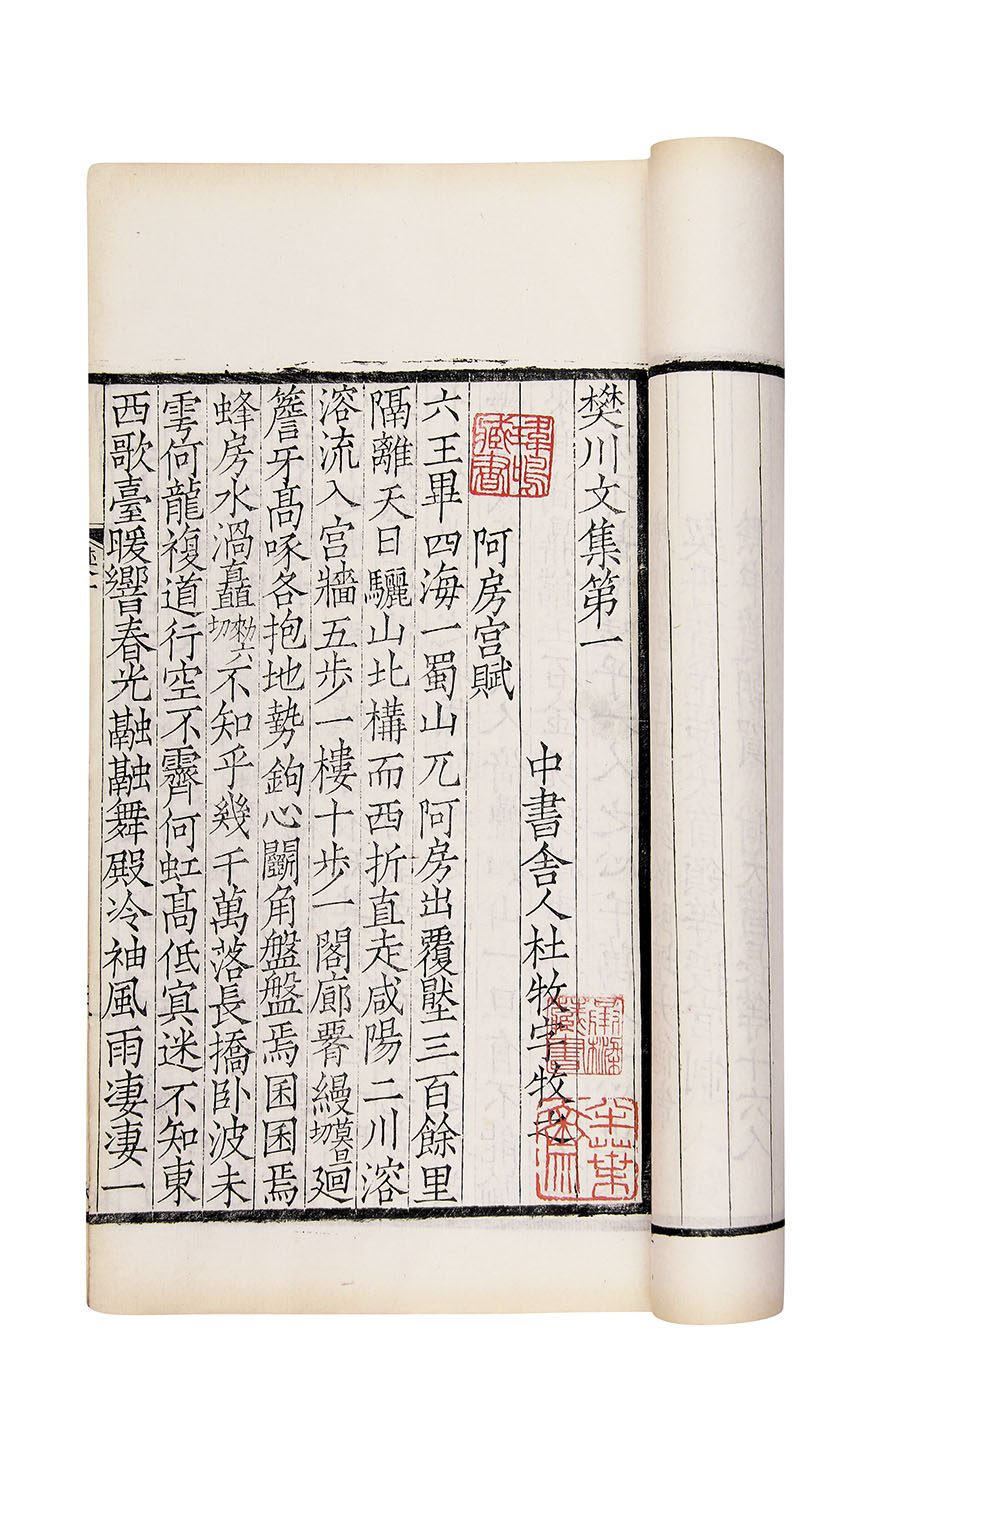 樊川文集第一
中書舍人杜牧字牧之
阿房宫賦
六王畢四海一蜀山兀阿房出覆壓三百餘里
隔離天日驪山北構而西折直走咸陽二川溶
溶流入宫牆五步一樓十步一閣廊𦝫縵莫旦切廻
簷牙髙啄各抱地勢鉤心鬬角盤盤焉囷囷焉
蜂房水渦矗勑六切不知乎幾千萬落長橋卧波未
雩何龍複道行空不霽何虹髙低冥迷不知東
西歌臺暖響春光融融舞殿冷袖風雨凄凄一
藏書
藏書